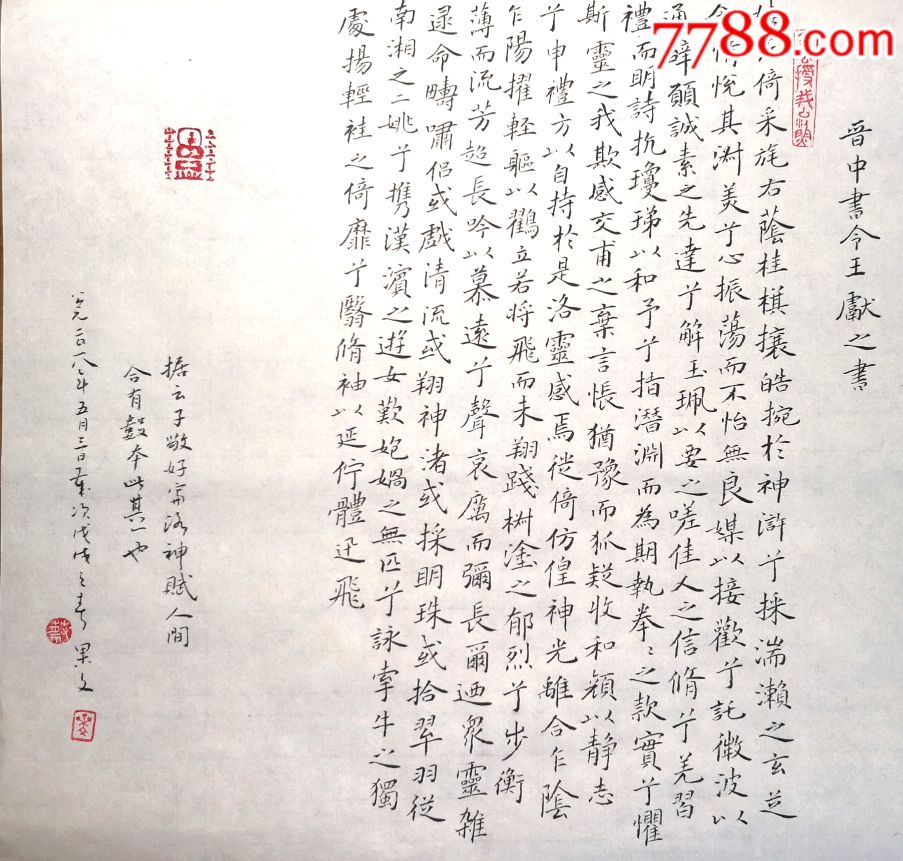 7788.com
晉中書令王獻之書
倚采旄右蔭桂棋攘皓捥於神滸兮採湍瀨之玄芝
余情悅其淑美兮心振蕩而不怡無良媒以接歡兮託微波以
通辭願誠素之先達兮解玉珮以要之嗟佳人之信脩兮羌習
禮而明詩抗瓊珶以和予兮指潛淵而為期執拳〻之款實兮懼
斯靈之我欺感交甫之棄言悵猶豫而狐疑收和顏以靜志
兮申禮方以自持於是洛靈感焉徙倚仿偟神光離合乍陰
乍陽擢輕軀以鶴立若將飛而未翔踐椒塗之郁烈兮步衡
薄而流芳超長吟以慕遠兮聲哀厲而彌長爾迺眾靈雜
遝命疇嘯侶或戲清流或翔神渚或採明珠或拾翠羽從
南湘之二姚兮攜漢濱之遊女歎匏媧之無匹兮詠牽牛之獨
處揚輕袿之倚靡兮翳脩袖以延佇體迅飛
据云子敬好寫洛神賦人間
合有數本此其一也
二〇一八年五月三日歲次戊戌之春 果文